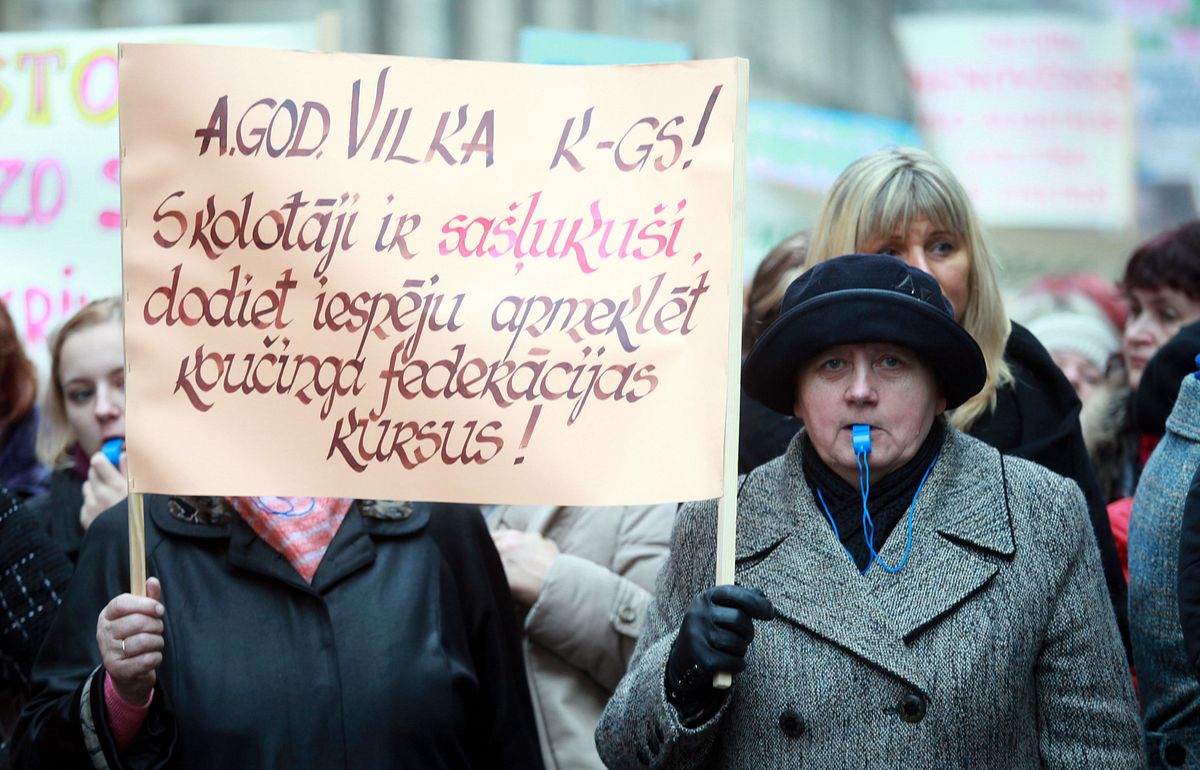 A.GOD. VILKA K-GS!
Skolotāji ir sašļukuši,
dodiet iespēju apmeklēt
koučinga federācijas
kursus!
STO